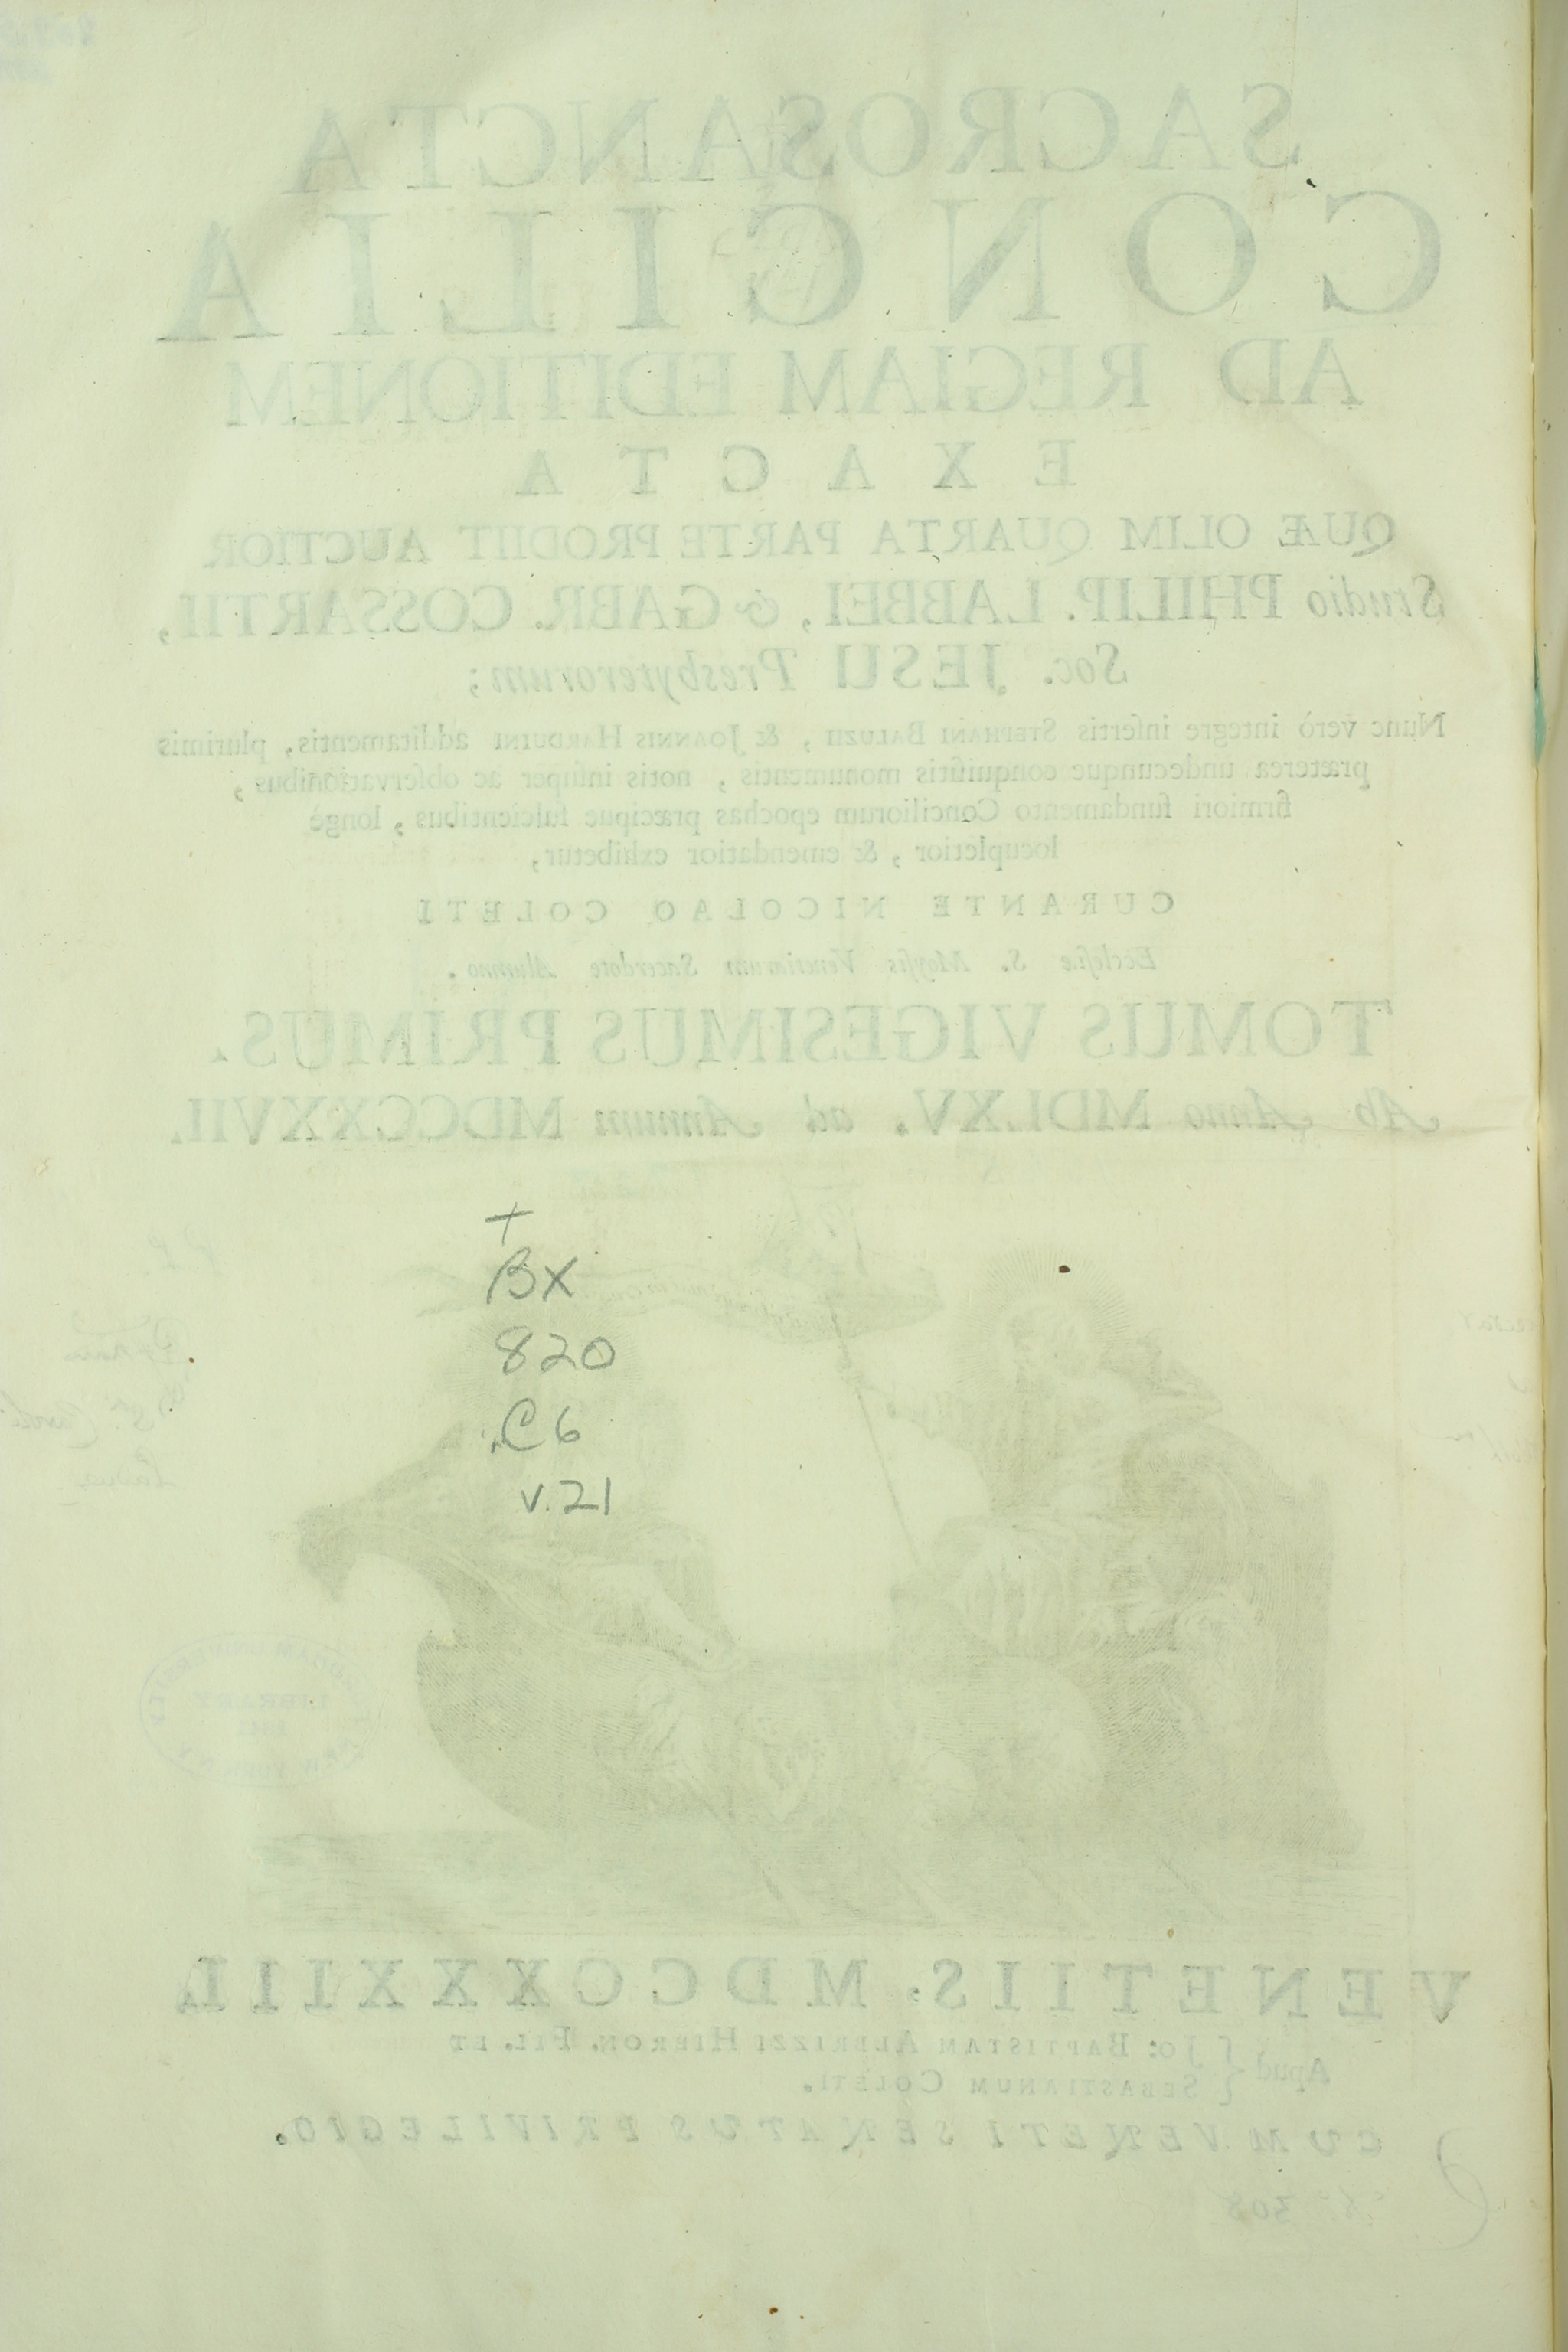 SACROSANCTA
CONCILIA
AD REGIAM EDITIONEM
EXACTA
QUÆ OLIM QUARTA PARTE PRODIIT AUCTIOR
Studio PHILIP. LABBEI, & GABR. COSSARTII,
Soc. JESU Presbyterorum;
Nunc verò integre insertis STEPHANI BALUZII, & JOANNIS HARDUINI additamentis, plurimis
præterea undecunque conquisitis monumentis, notis insuper ac observationibus,
firmiori fundamento Conciliorum epochas præcipue fulcientibus, longè
locupletior, & emendatior exhibetur,
CURANTE NICOLAO COLETI
Ecclesiæ S. Moysis Venetiarum Sacerdote Alumno.
TOMUS VIGESIMUS PRIMUS.
Ab Anno MDLXV. ad Annum MDCCXXVII.
+
BX
820
.C6
v.21
LIBRARY
VENETIIS, MDCCXXXIII.
Apud { JO: BAPTISTAM ALBRIZZI HIERON. FIL. ET
SEBASTIANUM COLETI.
CUM VENETI SENATUS PRIVILEGIO.
308